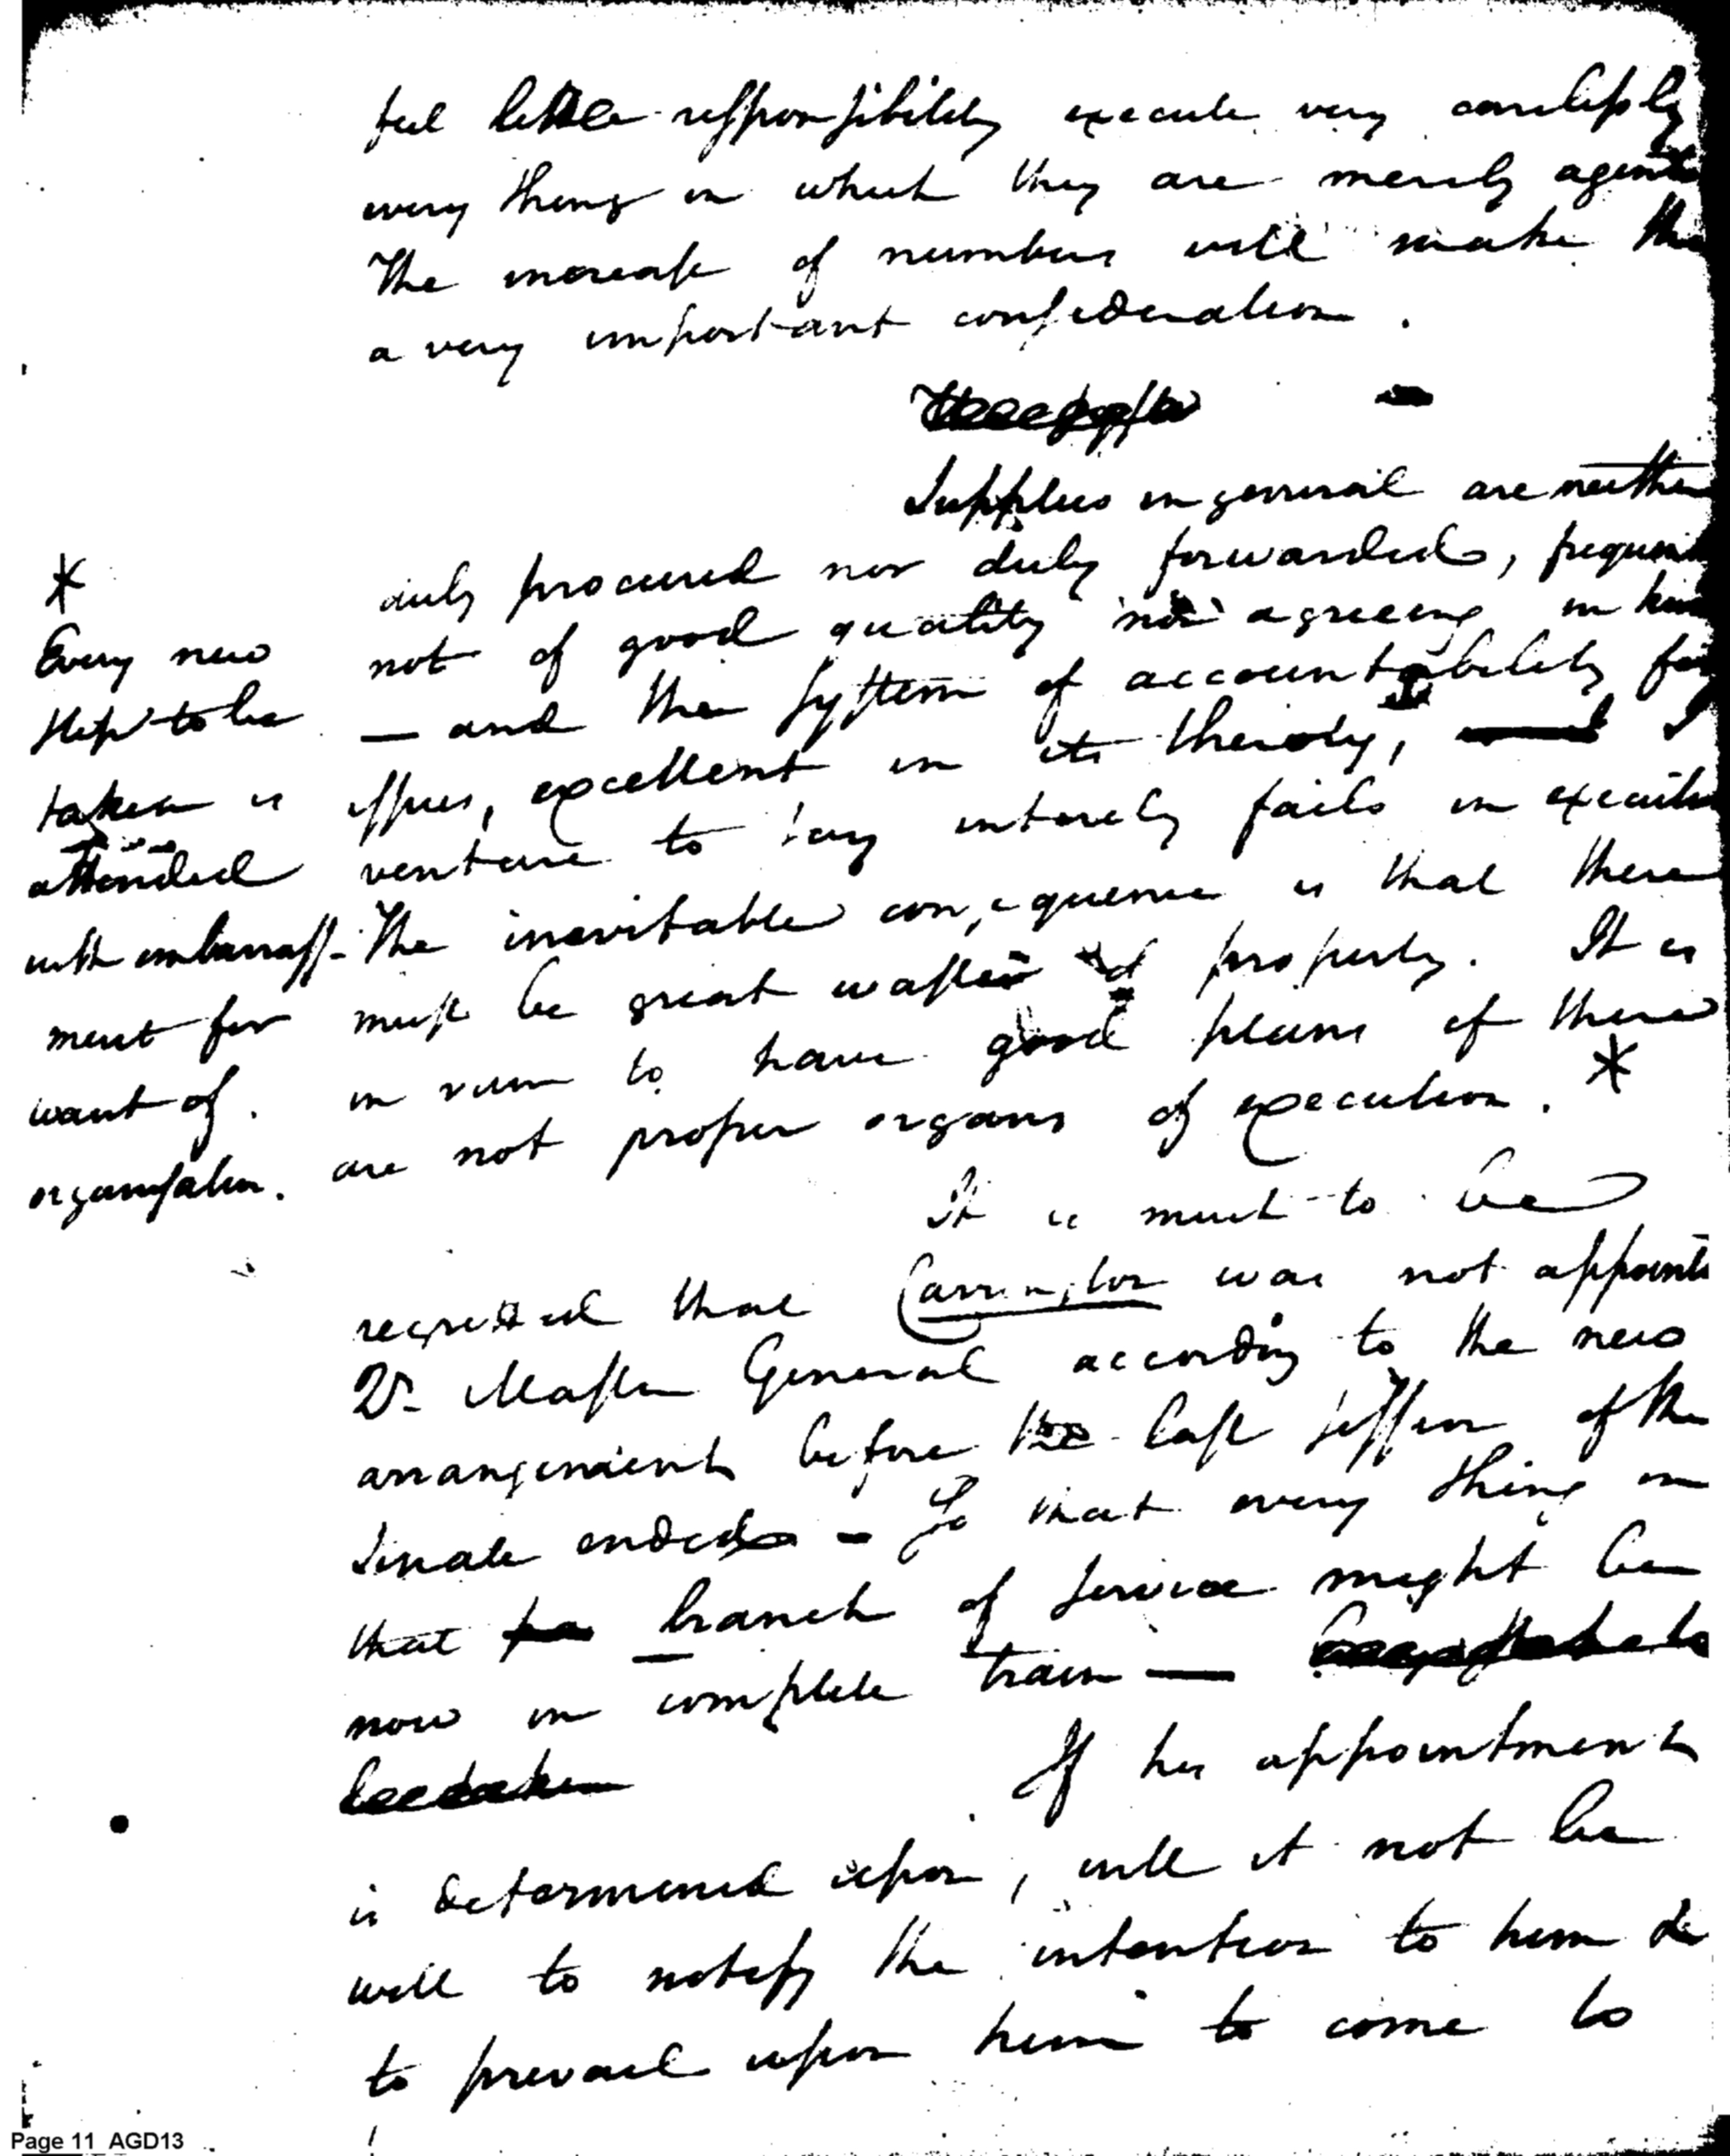 feel little responsibility execute very carelessly
every thing in which they are merely agents
The increase of numbers will make this
a very important consideration.
Supplies in general are neither
duly procured nor duly forwarded, frequently
not of good quality nor agreeing in kind
— and the system of accountability for
issues, excellent in its theory, I
venture to say intirely fails in execution
The inevitable consequence is that there
must be great waste of property. It is
in vain to have good plans if there
are not proper organs of execution. *
*
Every new
step to be
taken is
attended
with embarrass-
ment for
want of
organisation.
It is much to be
regretted that Carrington was not appointed
Qr. Master General according to the new
arrangement before the last session of the
Senate ended - So that every thing in
that branch of service might be
now in complete train —
If his appointment
is determined upon, will it not be
well to notify the intention to him &
to prevail upon him to come to
Page 11 AGD13